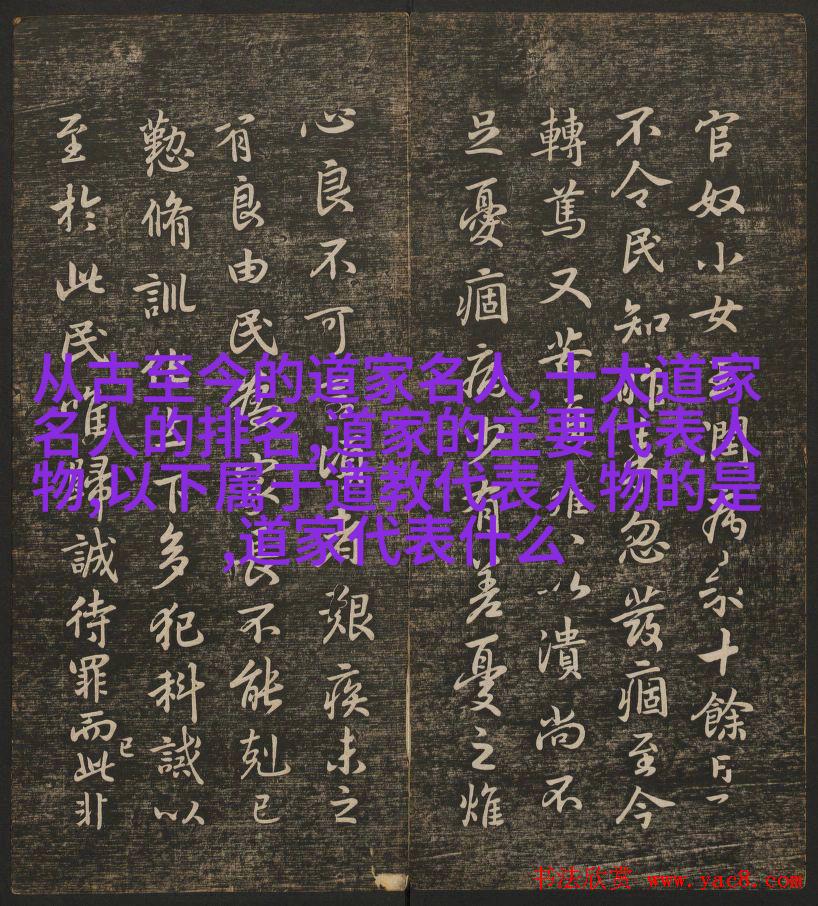 从古至今的道家名人,十大道家
名人的排名,道家的主要代表人
物,以下属于道教代表人物的是
,道家代表什么
官奴小女潤病来十餘日
不令民知昨来忽發痼至今
轉篤又苦以潰尚不
足憂痼病少有差憂之燋
心良不可言者艱疾未之
有良由民為家長不能剋己
懃脩訓化上下多犯科誡以
至於此民唯歸誠待罪而已此非
书法欣赏 www.yac8.com